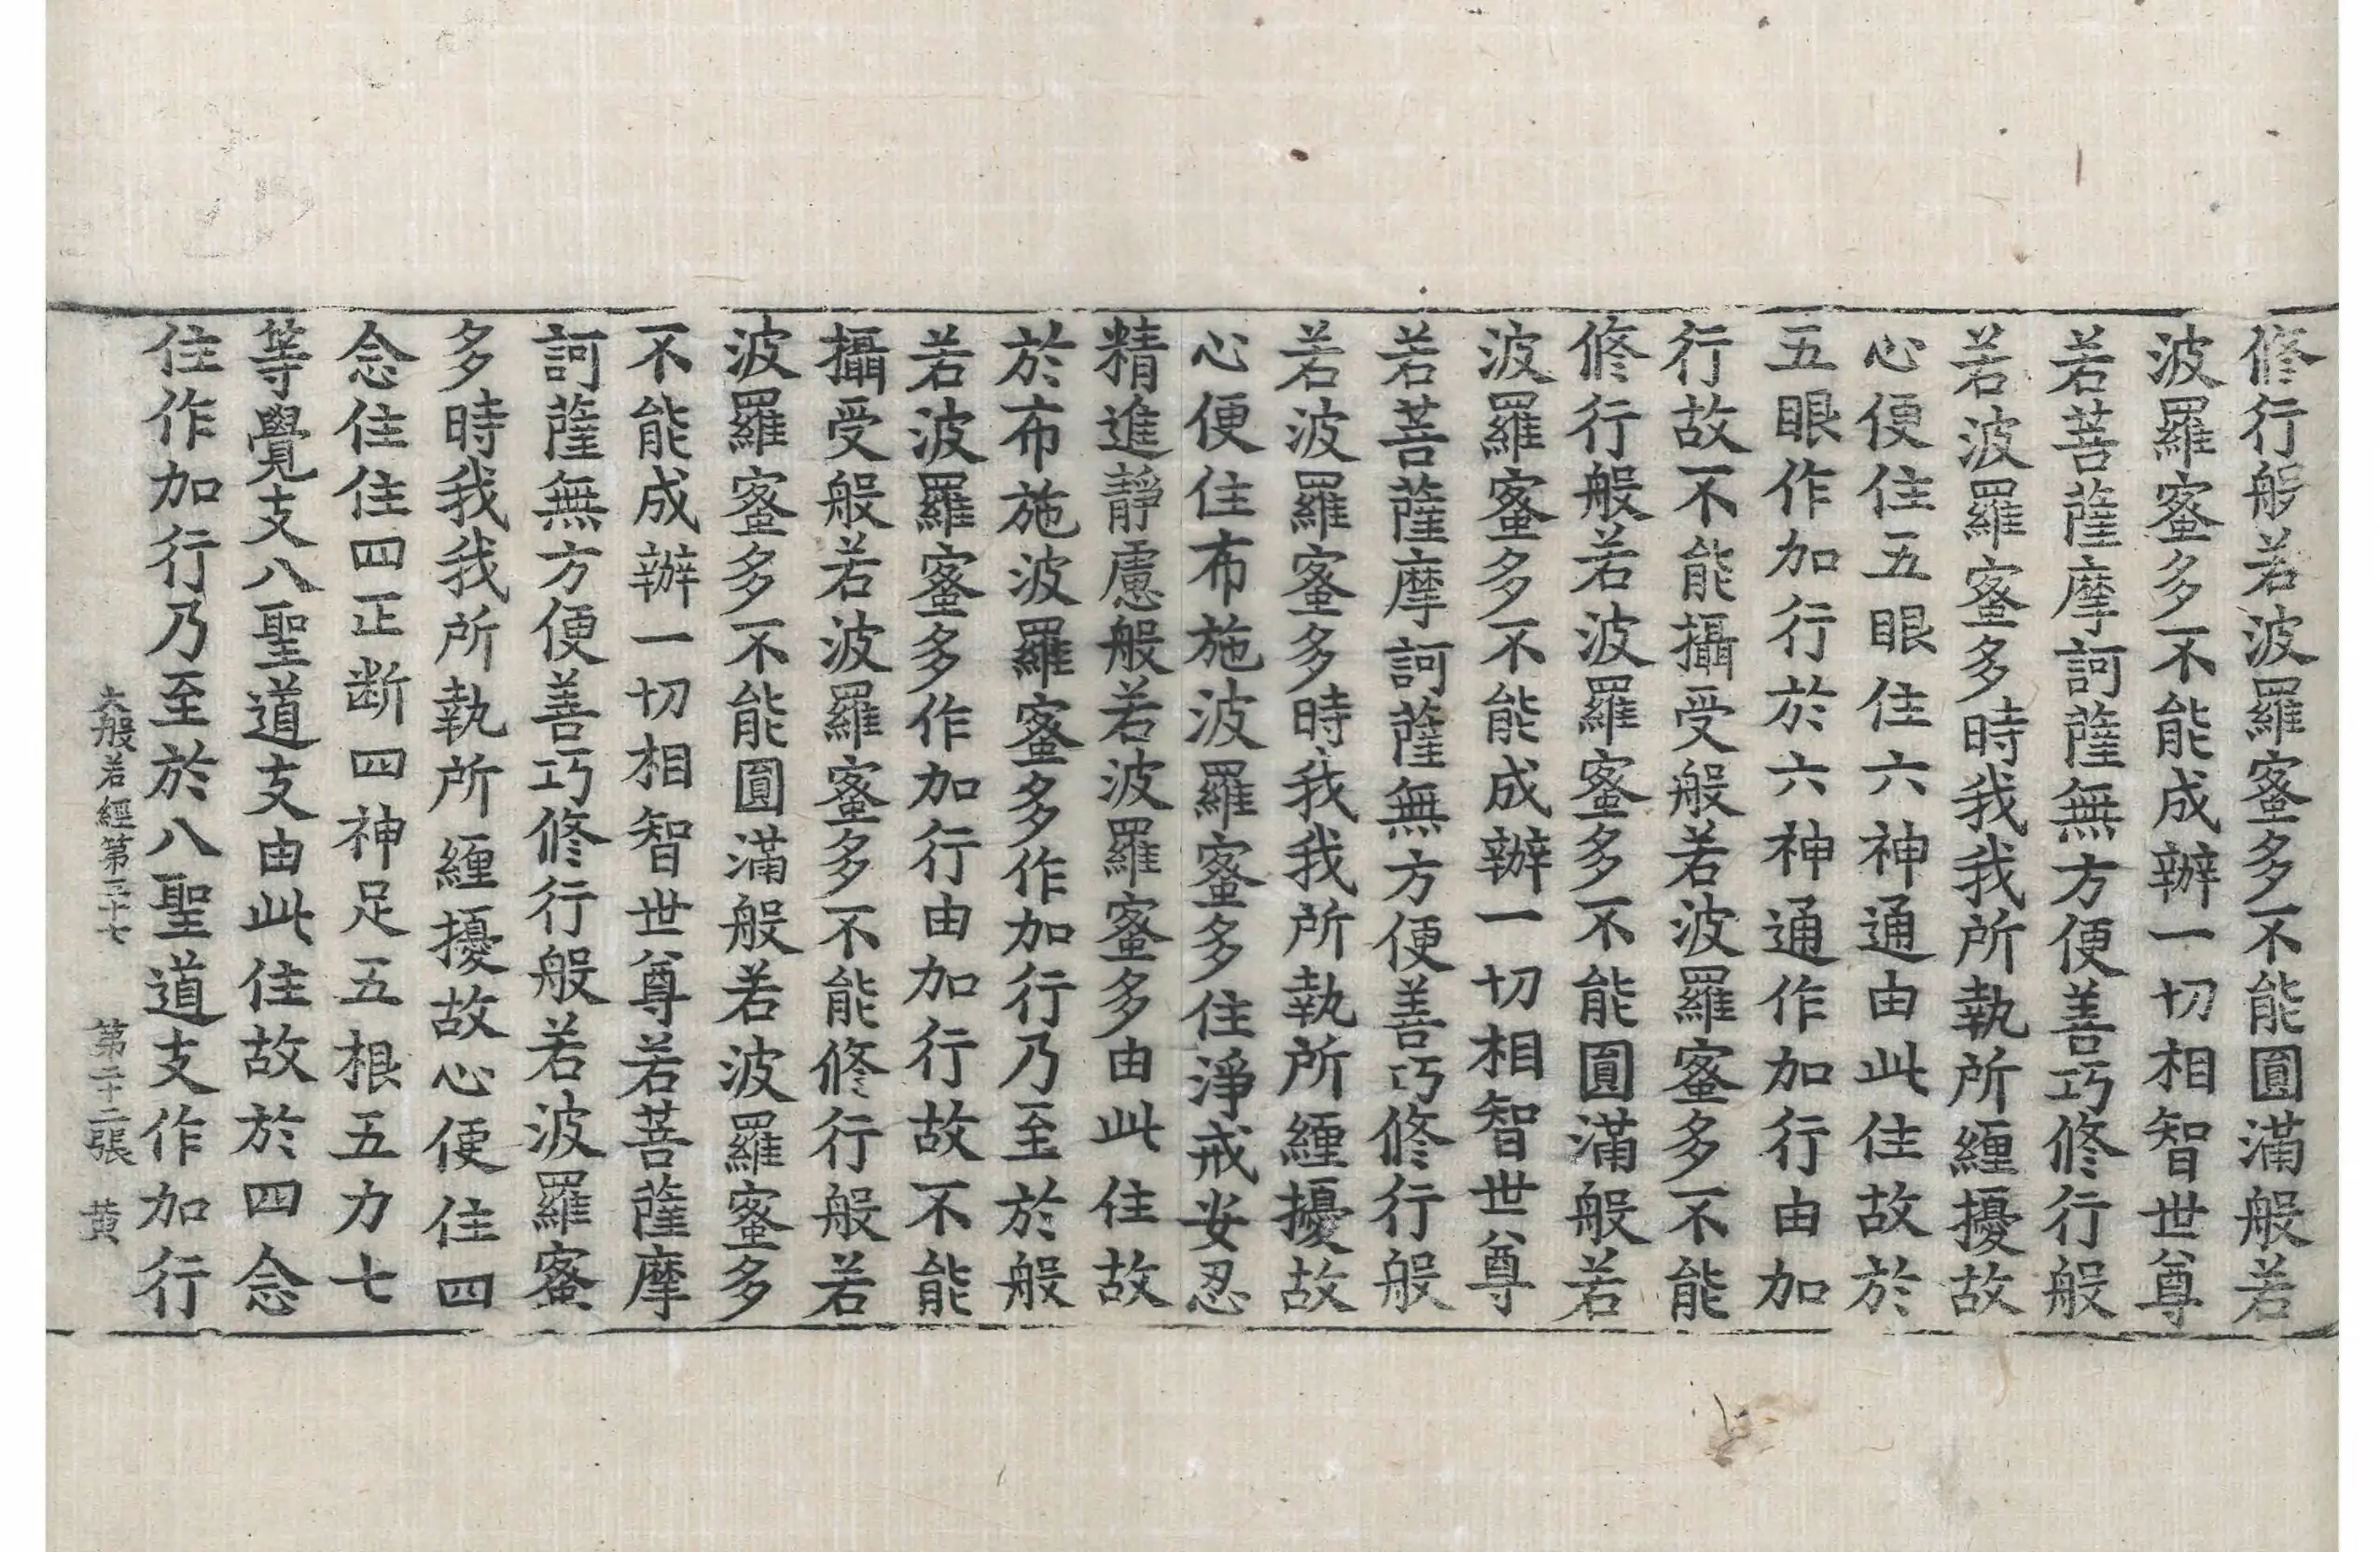 修行般若波羅蜜多不能圓滿般若
波羅蜜多不能成辦一切相智世尊
若菩薩摩訶薩無方便善巧修行般
若波羅蜜多時我我所執所纏擾故
心便住五眼住六神通由此住故於
五眼作加行於六神通作加行由加
行故不能攝受般若波羅蜜多不能
修行般若波羅蜜多不能圓滿般若
波羅蜜多不能成辦一切相智世尊
若菩薩摩訶薩無方便善巧修行般
若波羅蜜多時我我所執所纏擾故
心便住布施波羅蜜多住淨戒安忍
精進靜慮般若波羅蜜多由此住故
於布施波羅蜜多作加行乃至於般
若波羅蜜多作加行由加行故不能
攝受般若波羅蜜多不能修行般若
波羅蜜多不能圓滿般若波羅蜜多
不能成辦一切相智世尊若菩薩摩
訶薩無方便善巧修行般若波羅蜜
多時我我所執所纏擾故心便住四
念住住四正断四神足五根五力七
等覺支八聖道支由此住故於四念
住作加行乃至於八聖道支作加行
大般若經第三十七 第二十二張 黃